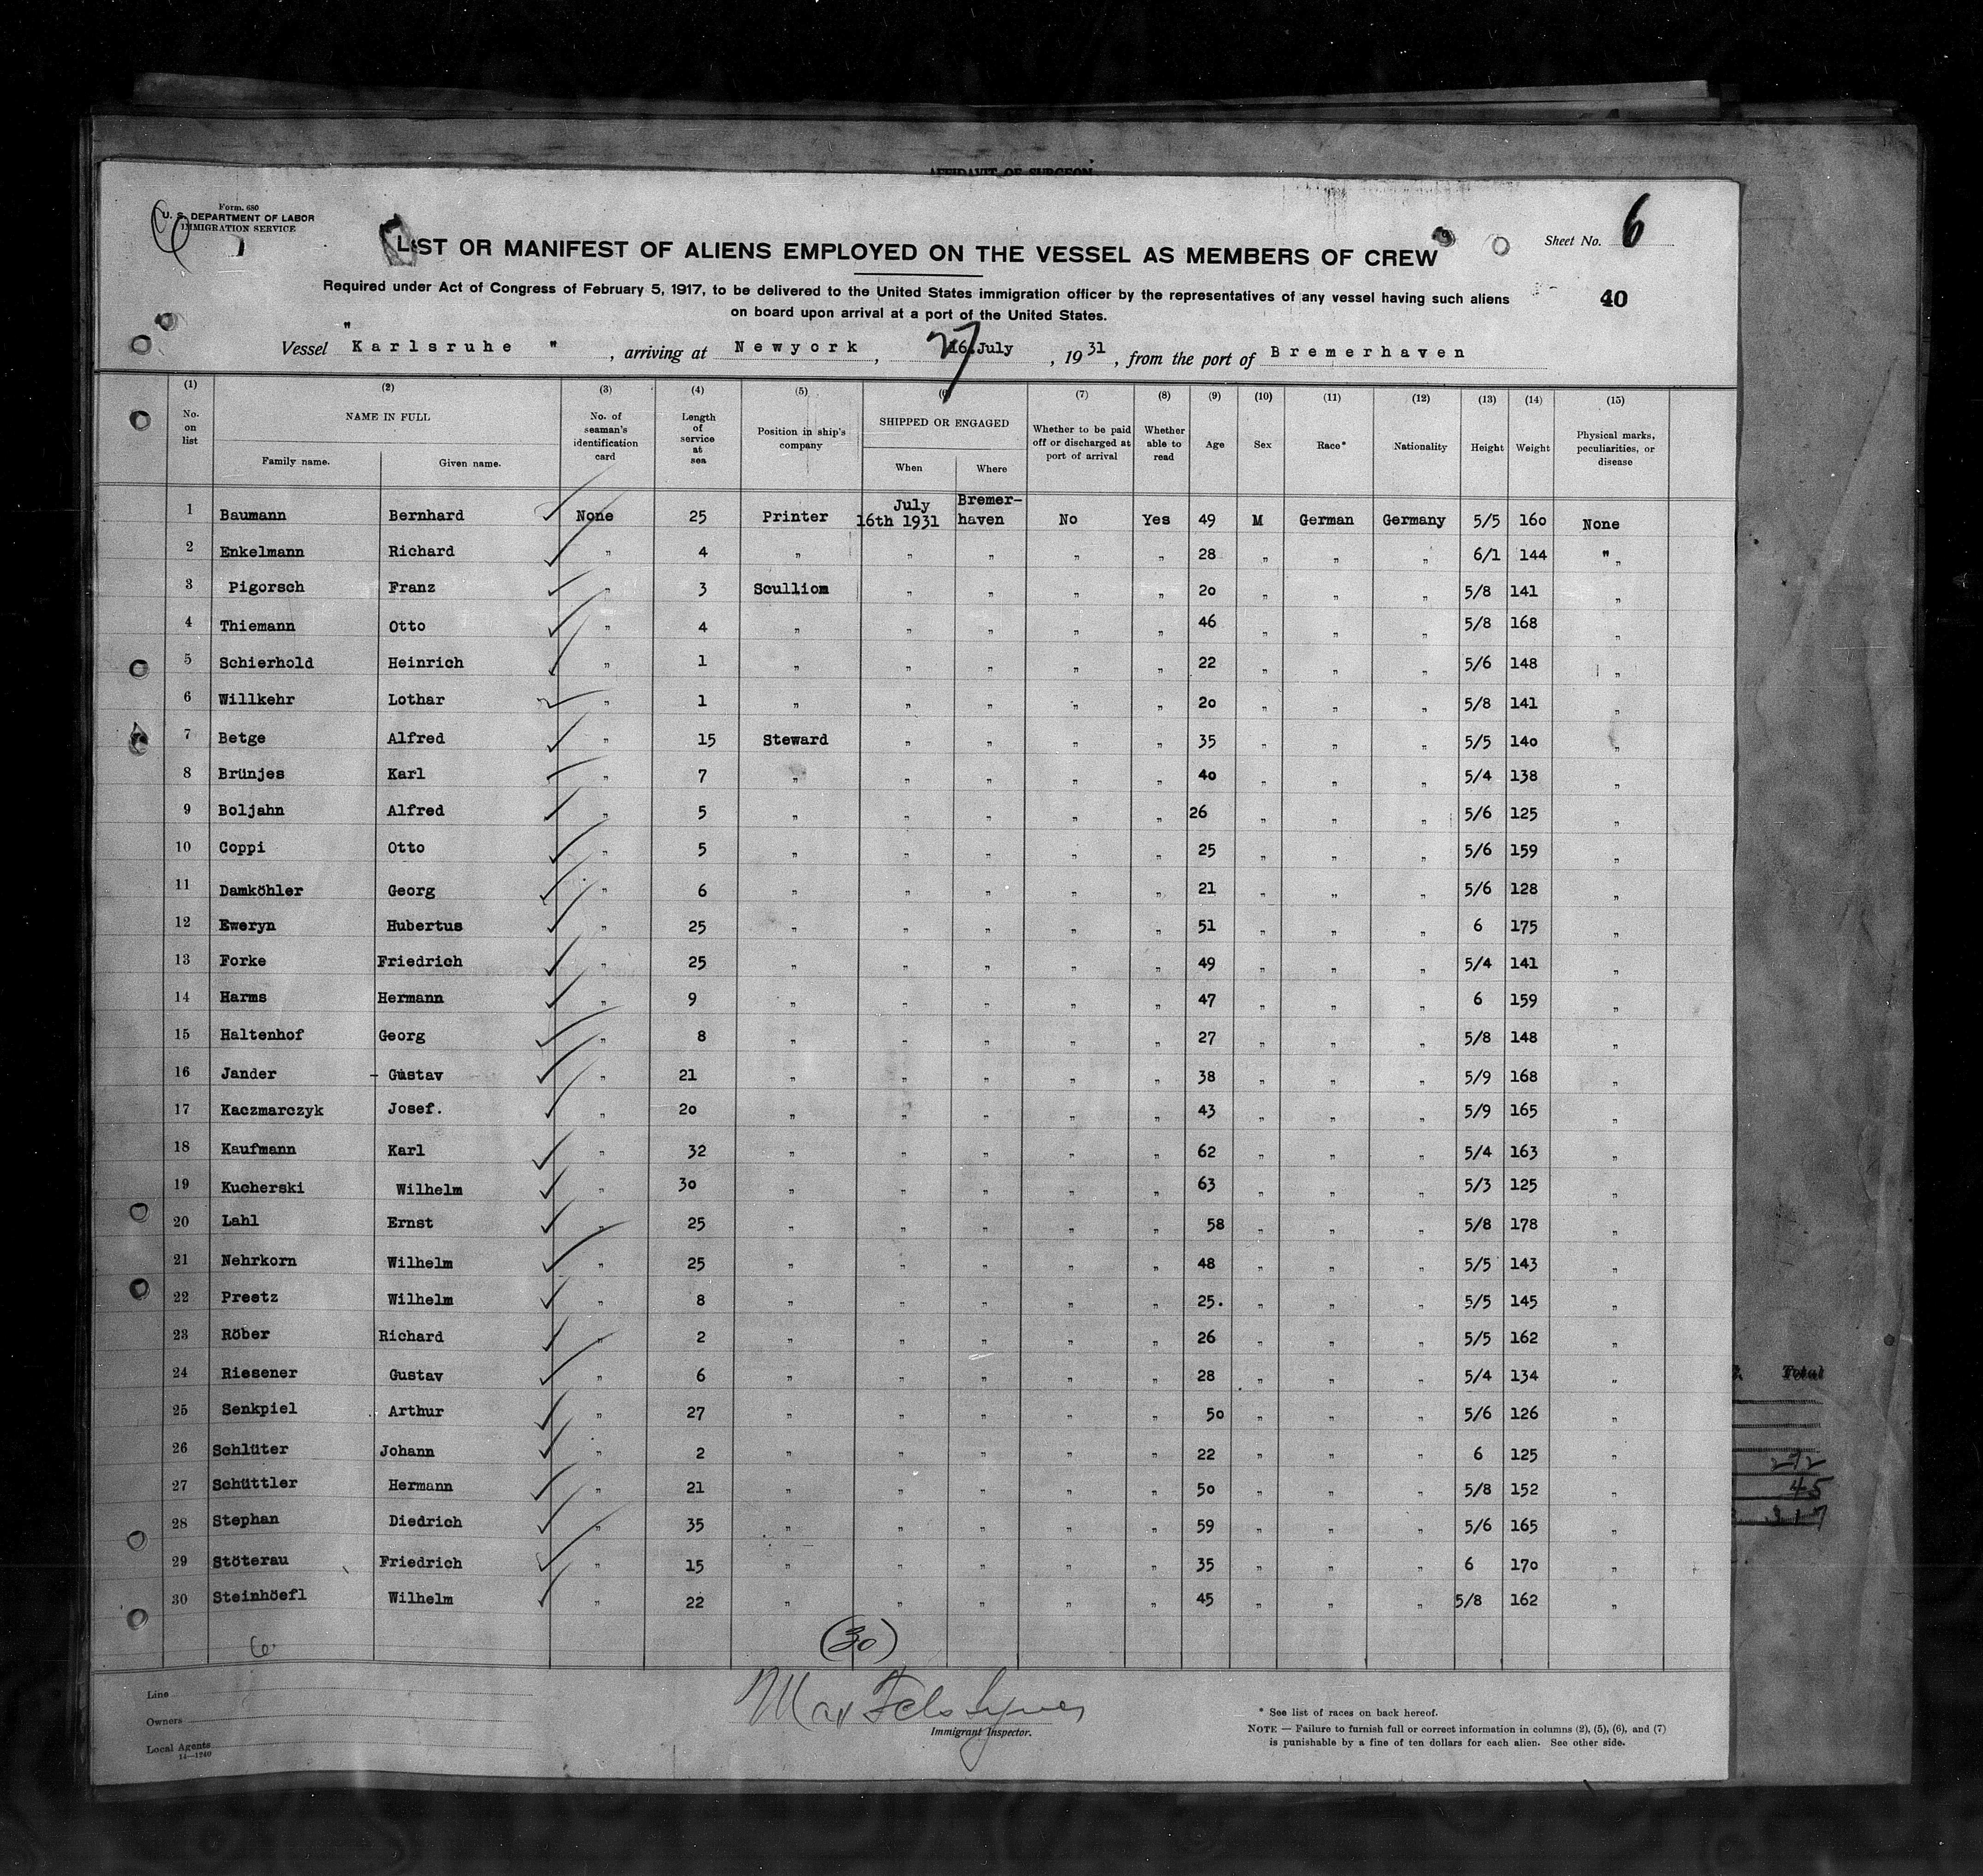 AFFIDAVIT OF SURGEON
Form. 680
U. S. DEPARTMENT OF LABOR
IMMIGRATION SERVICE
Sheet No. 6
LIST OR MANIFEST OF ALIENS EMPLOYED ON THE VESSEL AS MEMBERS OF CREW
40
Required under Act of Congress of February 5, 1917, to be delivered to the United States immigration officer by the representatives of any vessel having such aliens
on board upon arrival at a port of the United States.
Vessel " Karlsruhe " , arriving at Newyork , 27 16.July , 1931 , from the port of Bremerhaven
(1) (2) (3) (4) (5) (6) (7) (8) (9) (10) (11) (12) (13) (14) (15)
No. on list NAME IN FULL Family name. Given name. No. of seaman's identification card Length of service at sea Position in ship's company SHIPPED OR ENGAGED When Where Whether to be paid off or discharged at port of arrival Whether able to read Age Sex Race* Nationality Height Weight Physical marks, peculiarities, or disease
1 Baumann Bernhard None 25 Printer July 16th 1931 Bremer- haven No Yes 49 M German Germany 5/5 160 None
2 Enkelmann Richard " 4 " " " " " 28 " " " 6/1 144 " "
3 Pigorsch Franz " 3 Scullion " " " " 20 " " " 5/8 141 "
4 Thiemann Otto " 4 " " " " " 46 " " " 5/8 168 "
5 Schierhold Heinrich " 1 " " " " " 22 " " " 5/6 148 "
6 Willkehr Lothar " 1 " " " " " 20 " " " 5/8 141 "
7 Betge Alfred " 15 Steward " " " " 35 " " " 5/5 140 "
8 Brünjes Karl " 7 " " " " " 40 " " " 5/4 138 "
9 Boljahn Alfred " 5 " " " " " 26 " " " 5/6 125 "
10 Coppi Otto " 5 " " " " " 25 " " " 5/6 159 "
11 Damköhler Georg " 6 " " " " " 21 " " " 5/6 128 "
12 Eweryn Hubertus " 25 " " " " " 51 " " " 6 175 "
13 Forke Friedrich " 25 " " " " " 49 " " " 5/4 141 "
14 Harms Hermann " 9 " " " " " 47 " " " 6 159 "
15 Haltenhof Georg " 8 " " " " " 27 " " " 5/8 148 "
16 Jander - Gustav " 21 " " " " " 38 " " " 5/9 168 "
17 Kaczmarczyk Josef. " 20 " " " " " 43 " " " 5/9 165 "
18 Kaufmann Karl " 32 " " " " " 62 " " " 5/4 163 "
19 Kucherski Wilhelm " 30 " " " " " 63 " " " 5/3 125 "
20 Lahl Ernst " 25 " " " " " 58 " " " 5/8 178 "
21 Nehrkorn Wilhelm " 25 " " " " " 48 " " " 5/5 143 "
22 Preetz Wilhelm " 8 " " " " " 25. " " " 5/5 145 "
23 Röber Richard " 2 " " " " " 26 " " " 5/5 162 "
24 Riesener Gustav " 6 " " " " " 28 " " " 5/4 134 "
25 Senkpiel Arthur " 27 " " " " " 50 " " " 5/6 126 "
26 Schlüter Johann " 2 " " " " " 22 " " " 6 125 "
27 Schüttler Hermann " 21 " " " " " 50 " " " 5/8 152 "
28 Stephan Diedrich " 35 " " " " " 59 " " " 5/6 165 "
29 Stöterau Friedrich " 15 " " " " " 35 " " " 6 170 "
30 Steinhöefl Wilhelm " 22 " " " " " 45 " " " 5/8 162 "
6 (30)
Total
272
45
317
Line
Owners
Local Agents
14—1240
Max
Immigrant Inspector.
* See list of races on back hereof.
NOTE — Failure to furnish full or correct information in columns (2), (5), (6), and (7)
is punishable by a fine of ten dollars for each alien. See other side.